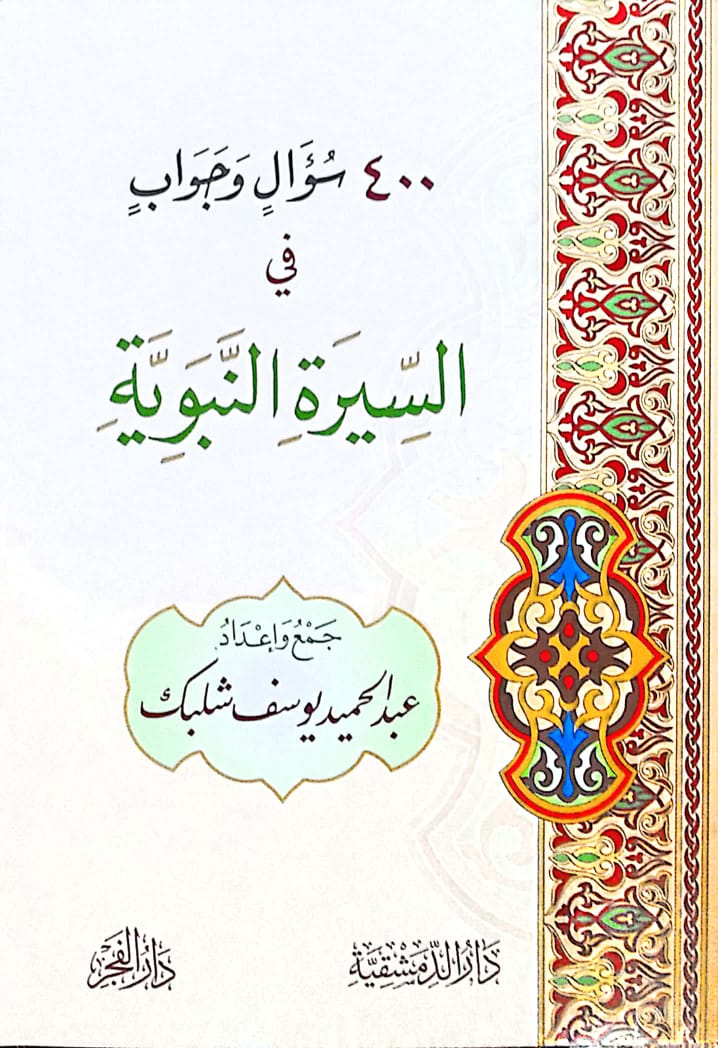 ٤٠٠ سُؤَالٍ وَجَوَابٍ
في
السِّيرَةِ النَّبَوِيَّةِ
جَمْعُ وَإعْدَادُ
عبد الحميد يوسف شلبك
دَارُ الدِّمَشْقِيَّة
دَارُ الفَجْرِ